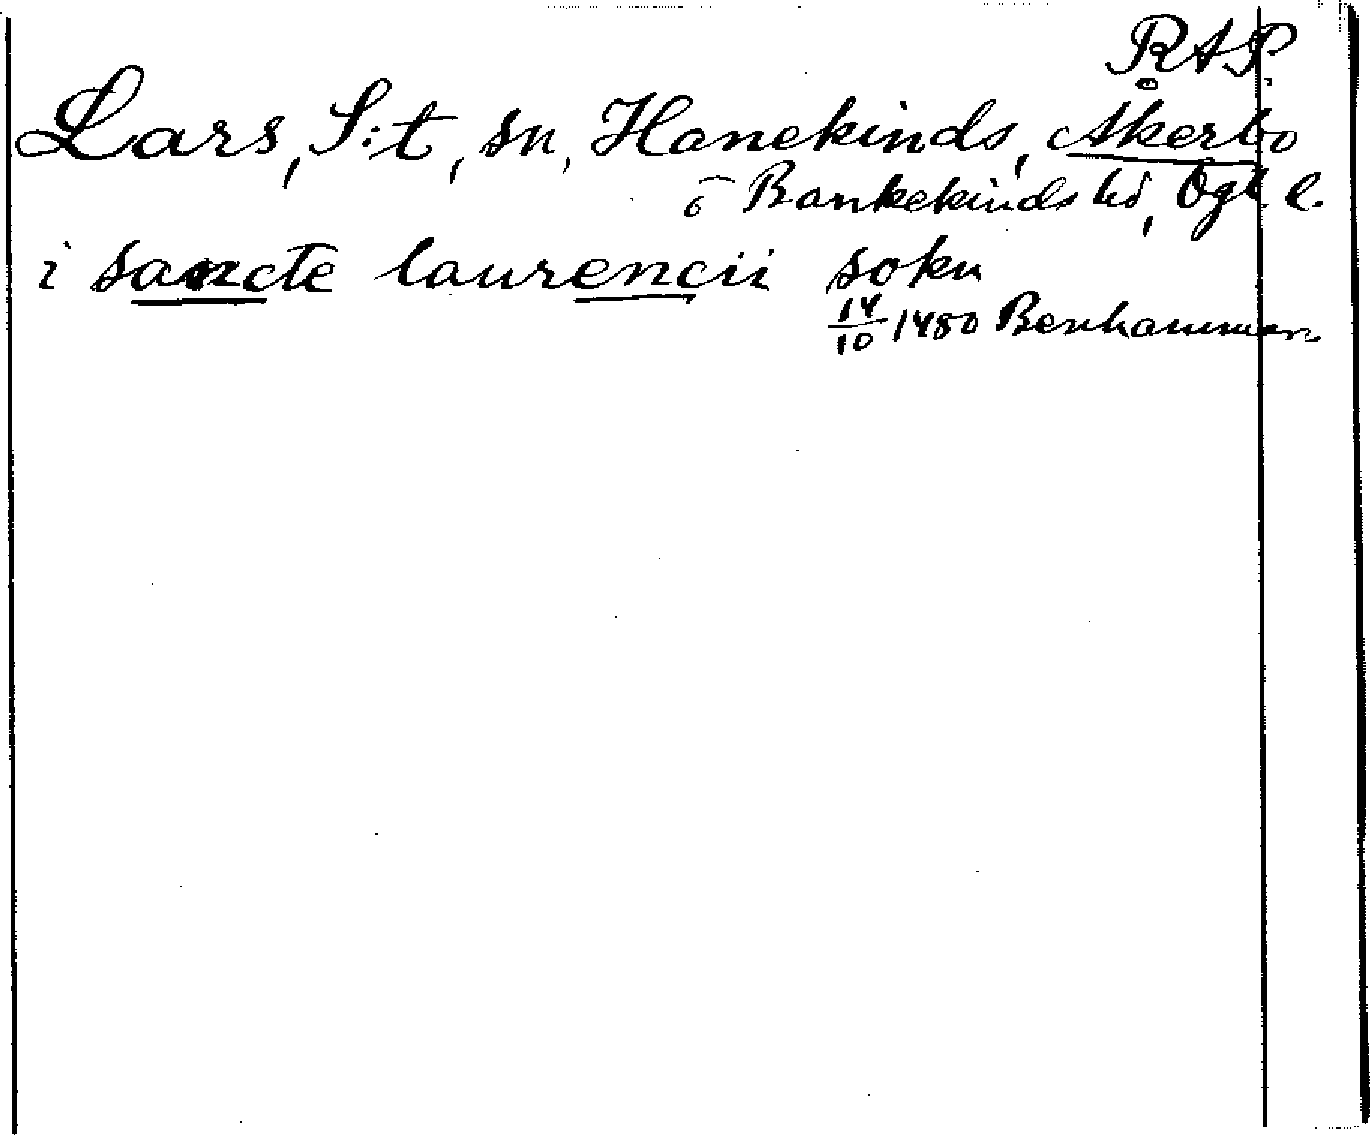 RAP.
Lars, S:t, sn, Hanekinds, Akerbo
o Bankekinds hd, Ögl l.
i sancte laurencii sokn
14/10 1480 Benhammar